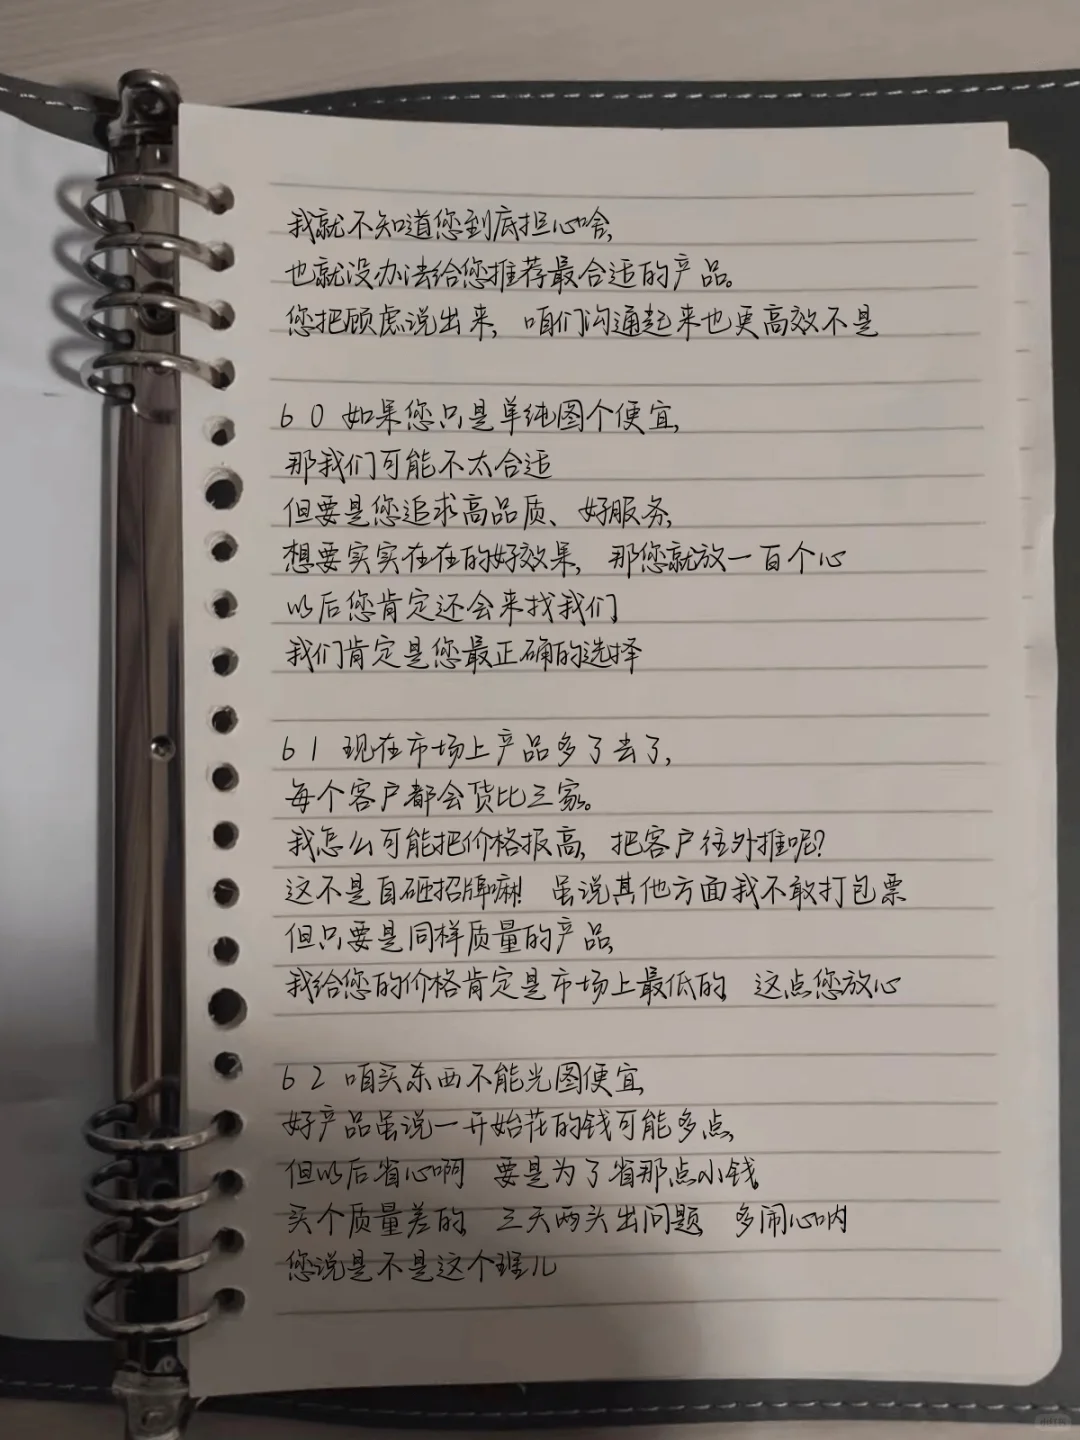 我就不知道您到底担心啥,
也就没办法给您推荐最合适的产品。
您把顾虑说出来, 咱们沟通起来也更高效不是
60 如果您只是单纯图个便宜,
那我们可能不太合适
但要是您追求高品质、好服务,
想要实实在在的好效果, 那您就放一百个心
以后您肯定还会来找我们
我们肯定是您最正确的选择
61 现在市场上产品多了去了,
每个客户都会货比三家。
我怎么可能把价格报高, 把客户往外推呢?
这不是自砸招牌嘛! 虽说其他方面我不敢打包票
但只要是同样质量的产品,
我给您的价格肯定是市场上最低的, 这点您放心
62 咱买东西不能光图便宜,
好产品虽说一开始花的钱可能多点,
但以后省心啊 要是为了省那点小钱,
买个质量差的, 三天两头出问题, 多闹心呐
您说是不是这个理儿
小红书